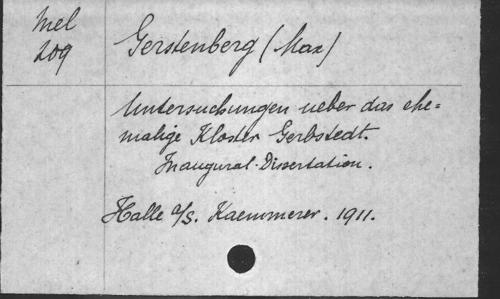 Mel
209
Gerstenberg (Max)
Untersuchungen ueber das ehe=
malige Kloster Gerbstedt.
Inaugural-Dissertation.
Halle a/S. Kaemmerer. 1911.